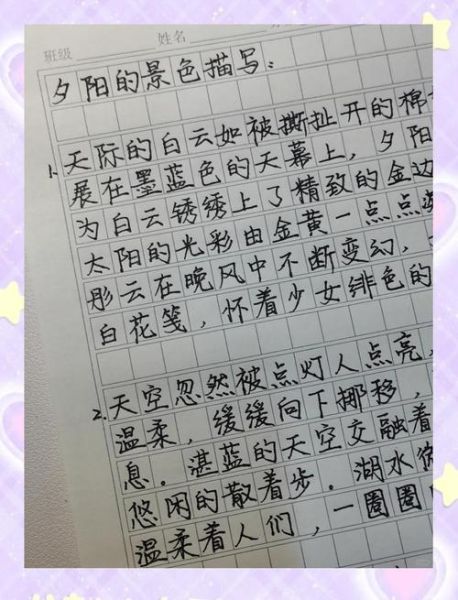 班级 姓名
夕阳的景色描写：
1、天际的白云如被撕扯开的棉
展在墨蓝色的天幕上，夕阳
为白云锈绣上了精致的金边
太阳的光彩由金黄一点点
彤云在晚风中不断变幻，
白花笺，怀着少女绯色的
2、天空忽然被点灯人点亮，
温柔，缓缓向下挪移，
息．湛蓝的天空交融着
悠闲的散着步．湖水
温柔着人们，一圈圈